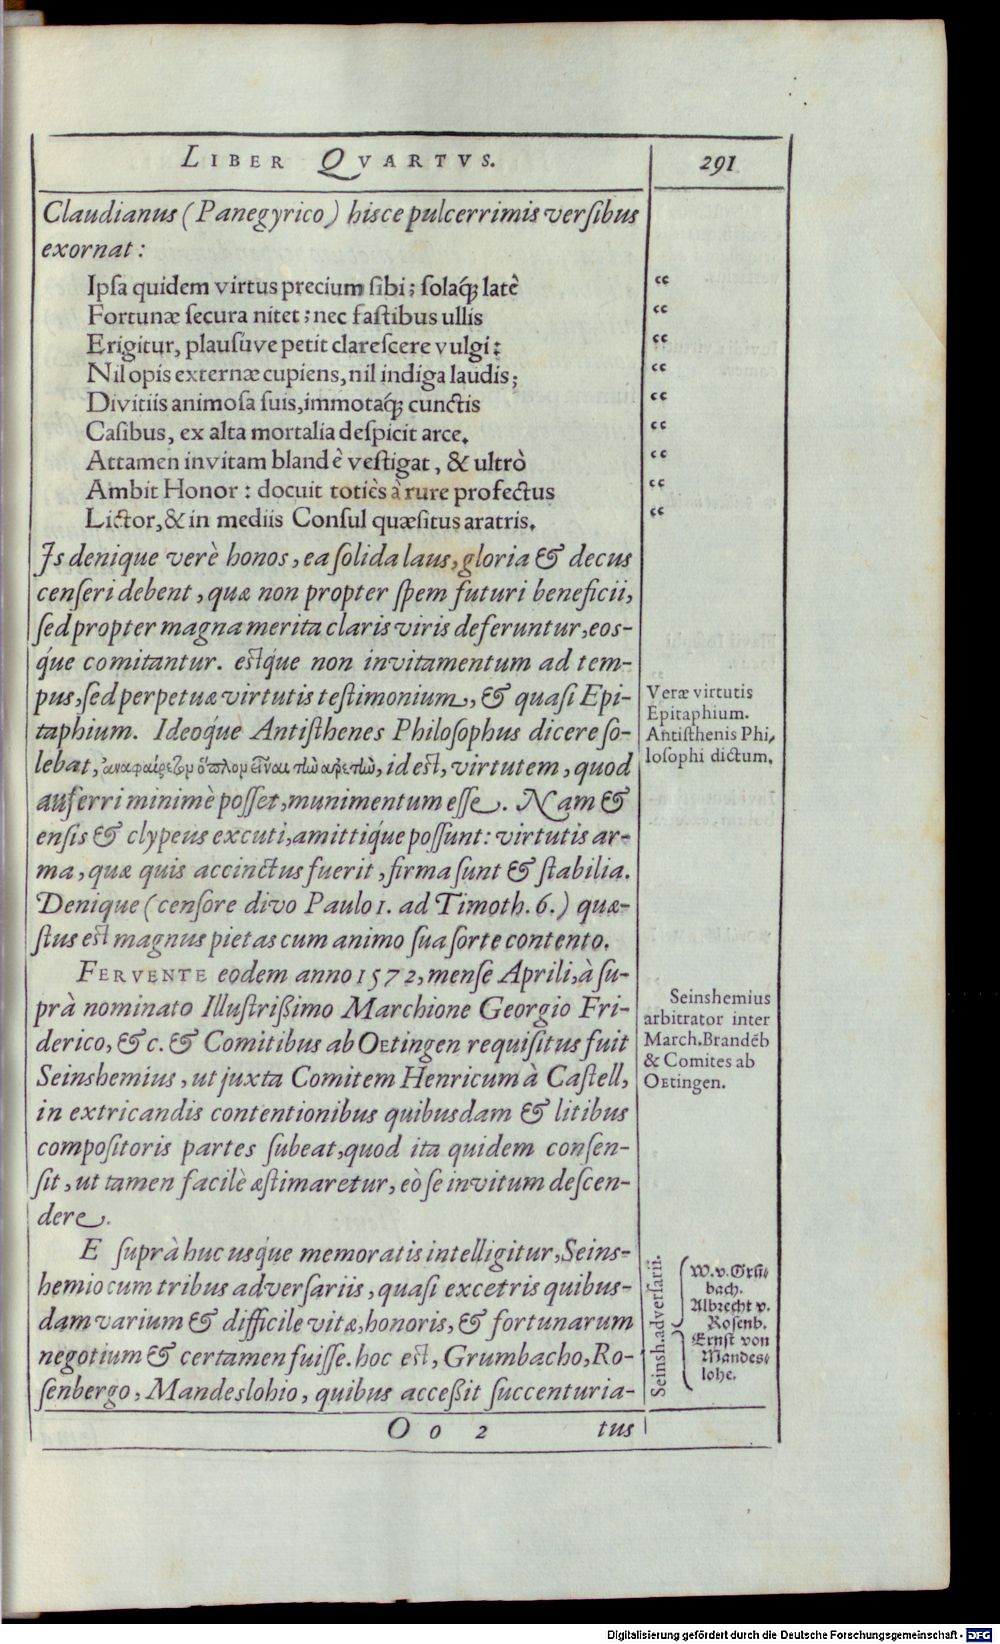 LIBER QVARTVS.
291
Claudianus (Panegyrico) hisce pulcerrimis versibus
exornat:
Ipsa quidem virtus precium sibi; solaq́; latè
Fortunæ secura nitet; nec fastibus ullis
Erigitur, plausúve petit clarescere vulgi:
Nil opis externæ cupiens, nil indiga laudis;
Divitiis animosa suis, immotaq́; cunctis
Casibus, ex alta mortalia despicit arce.
Attamen invitam blandè vestigat, & ultrò
Ambit Honor: docuit totiès à rure profectus
Lictor, & in mediis Consul quæsitus aratris.
Is denique verè honos, ea solida laus, gloria & decus
censeri debent, quæ non propter spem futuri beneficii,
sed propter magna merita claris viris deferuntur, eos-
q́ue comitantur. estq́ue non invitamentum ad tem-
pus, sed perpetuæ virtutis testimonium, & quasi Epi-
taphium. Ideoq́ue Antisthenes Philosophus dicere so-
lebat, ἀναφαίρετον ὅπλον εἶναι τὼ ἀρετὼ, id est, virtutem, quod
auferri minimè posset, munimentum esse. Nam &
ensis & clypeus excuti, amittiq́ue possunt: virtutis ar-
ma, quæ quis accinctus fuerit, firma sunt & stabilia.
Denique (censore divo Paulo 1. ad Timoth. 6.) quæ-
stus est magnus pietas cum animo sua sorte contento.
FERVENTE eodem anno 1572, mense Aprili, à su-
prà nominato Illustrißimo Marchione Georgio Fri-
derico, & c. & Comitibus ab OEtingen requisitus fuit
Seinshemius, ut juxta Comitem Henricum à Castell,
in extricandis contentionibus quibusdam & litibus
compositoris partes subeat, quod ita quidem consen-
sit, ut tamen facilè æstimaretur, eò se invitum descen-
dere.
E suprà huc usq́ue memoratis intelligitur, Seins-
hemio cum tribus adversariis, quasi excetris quibus-
dam varium & difficile vitæ, honoris, & fortunarum
negotium & certamen fuisse. hoc est, Grumbacho, Ro-
senbergo, Mandeslohio, quibus acceßit succenturia-
O o 2
tus
“
“
“
“
“
“
“
“
“
Veræ virtutis
Epitaphium.
Antisthenis Phi-
losophi dictum.
Seinshemius
arbitrator inter
March. Brandēb
& Comites ab
OEtingen.
Seinsh. adversarii.
W. v. Grū-
bach.
Albrecht v.
Rosenb.
Ernst von
Mandes-
lohe.
Digitalisierung gefördert durch die Deutsche Forschungsgemeinschaft - DFG